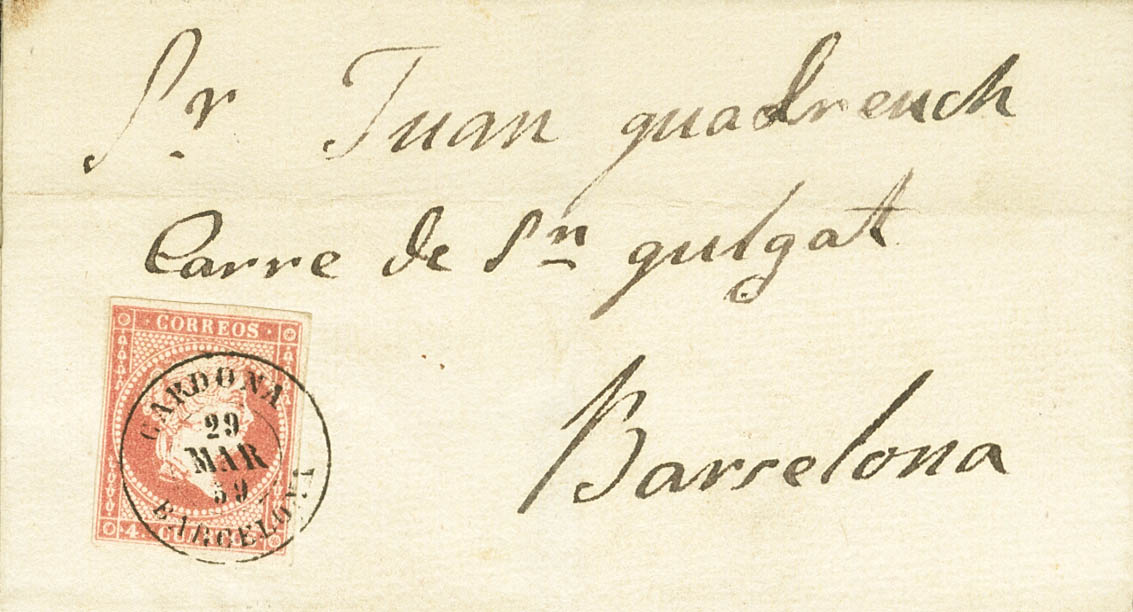 Sr Juan quadrench
Carre de Sn qulgat
Barselona
CORREOS
CARDONA
29
MAR
59
BARCELONA
4 CUARTOS